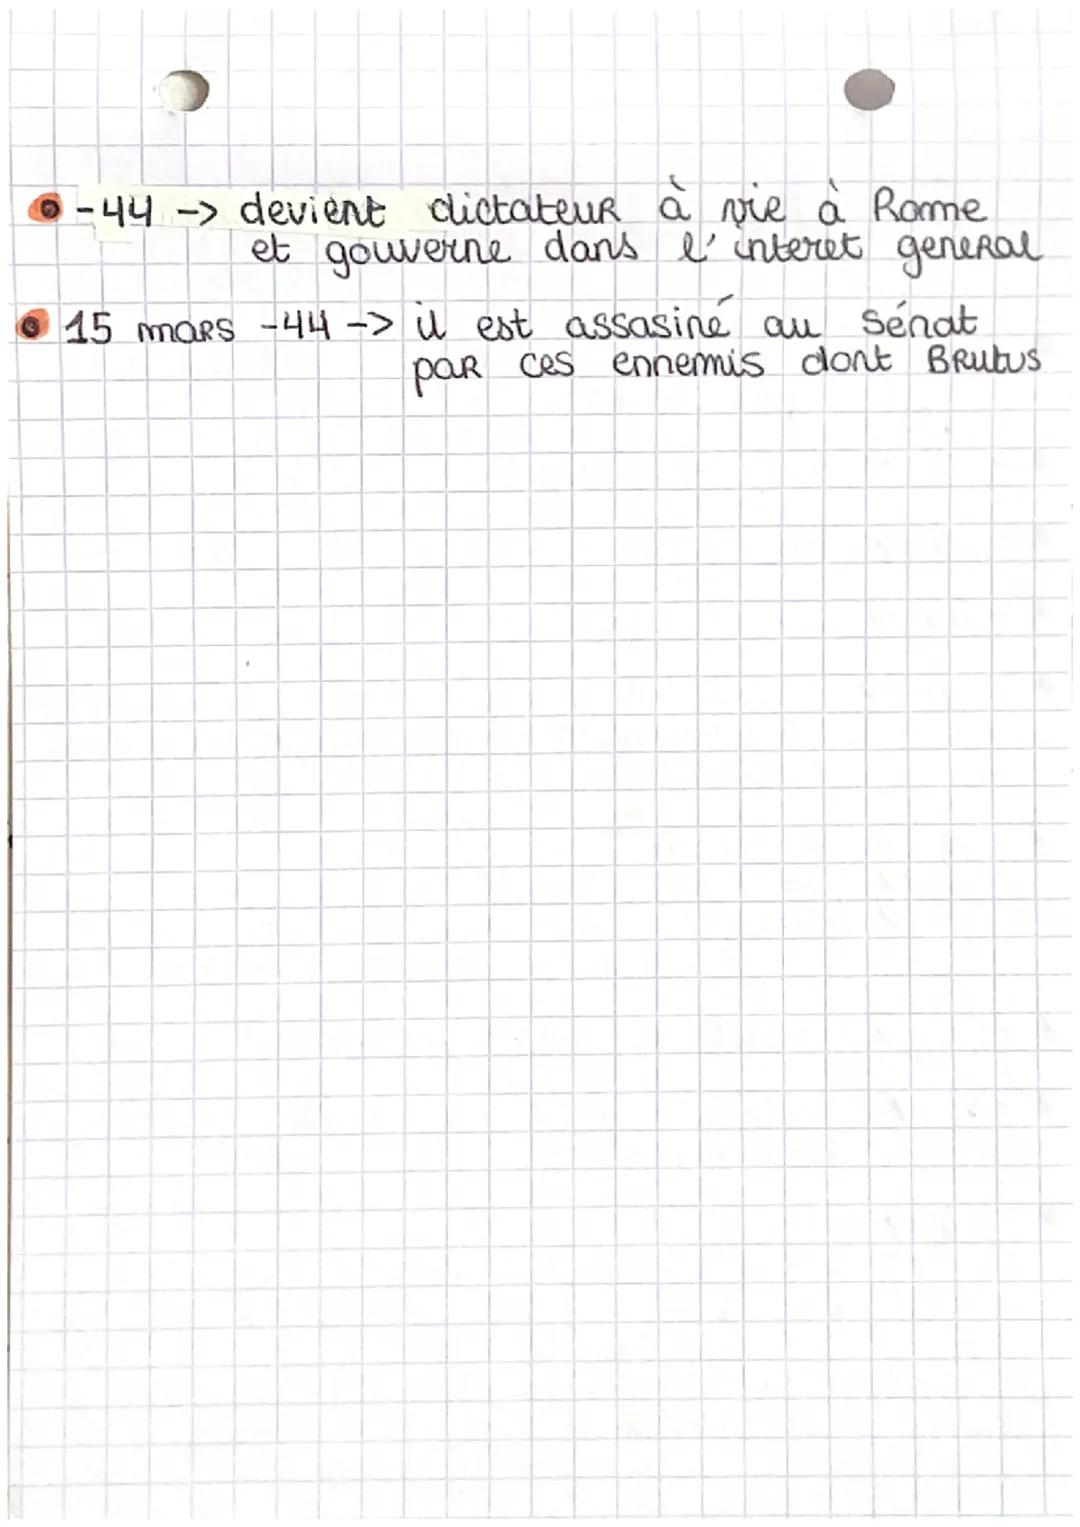 -44 -> devient dictateur à vie à Rome
et gouverne dans l'interet general
15 mars -44 -> il est assasiné au Sénat
par ces ennemis dont Brutus